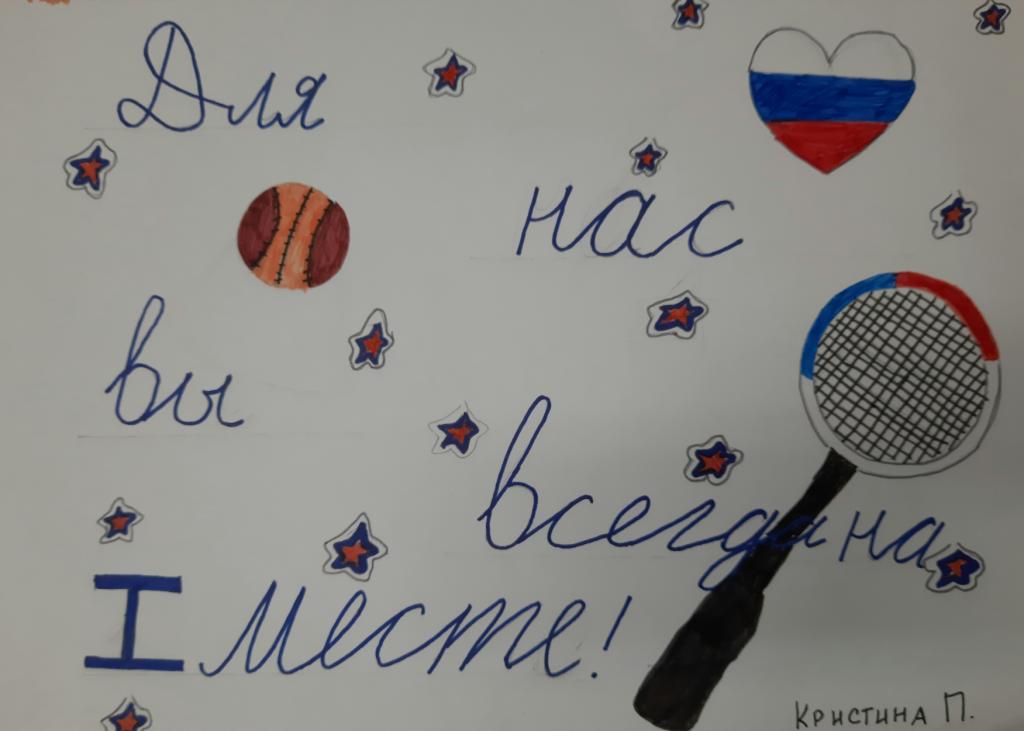 Для
нас
вы
всегда на
I месте!
Кристина П.